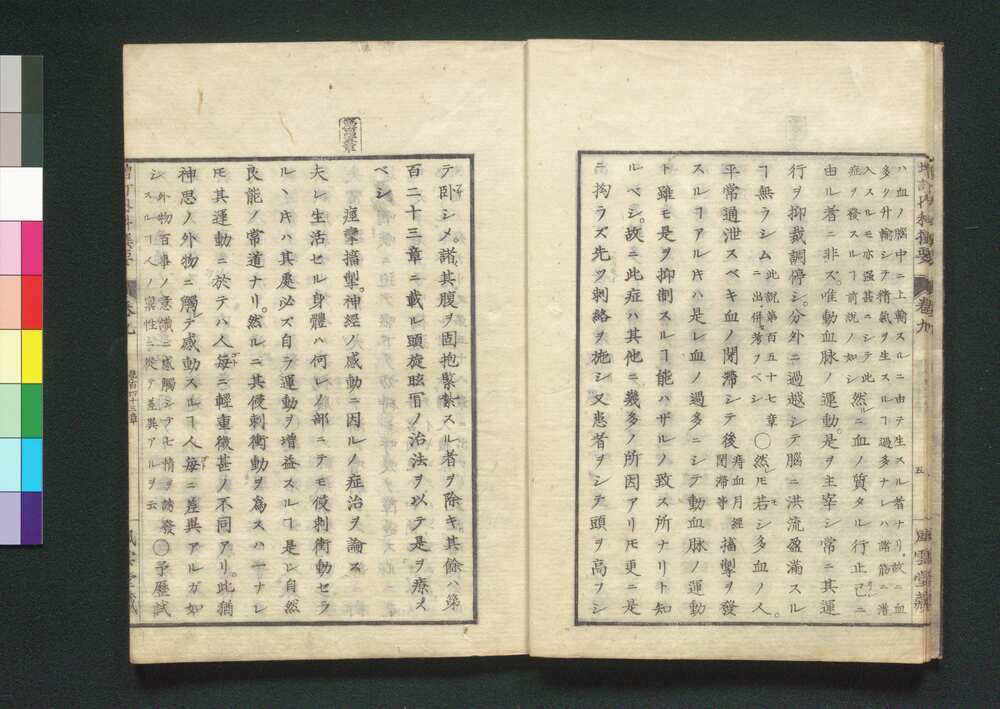 ハ血ノ腦中ニ上輸スルニ由テ生スル者ナリ。故ニ血
多ク升輸シテ精氣ヲ生スルヿ過多ナレハ諸筋ニ潛
入スルモ亦强甚ニシテ此
症ヲ發スルヿ前説ノ如シ 然レニ血ノ質タル行止已ニ
由ル者ニ非ズ。唯動血脉ノ運動。是ヲ主宰シ常ニ其運
行ヲ抑裁調停シ。分外ニ過越シテ腦ニ洪流盈滿スル
ヿ無ラシム 此説第百五十七章
ニ出。併考フベシ ◯然レモ若シ多血ノ人。
平常通泄スベキ血ノ閉滯シテ後 痔血月經
閉滯等 搐掣ヲ發
スルヿアルキハ是レ血ノ過多ニシテ動血脉ノ運動
ト雖モ是ヲ抑制スルヿ能ハザルノ致ス所ナリト知
ルベシ。故ニ此症ハ其他ニ幾多ノ所因アリモ更ニ是
ニ拘ラズ先ヅ刺絡ヲ施シ又患者ヲシテ頭ヲ高フシ
增訂内科撰要 卷九 五 風雲堂藏
テ臥シメ。諸其腹ヲ固抱緊紮スル者ヲ除キ。其餘ハ第
百二十三章ニ載ル頭旋眩冒ノ治法ヲ以テ是ヲ療ス
ベシ
痙攣搐掣。神經ノ感動ニ因ルノ症治ヲ論ス
夫レ生活セル身體ハ何レノ部ニテモ侵刺衝動セラ
ルヽキハ其處必ズ自ラ運動ヲ增益スルヿ是レ自然
良能ノ常道ナリ。然ルニ其侵刺衝動ヲ爲スハ一ナレ
モ其運動ニ於テハ人每ニ輕重微甚ノ不同アリ。此猶
神思ノ外物ニ觸テ感動スルヿ人每ニ差異アルガ如
シ 外物百事ノ意識ニ感觸シテ七情ヲ誘發
スルヿ人ノ稟性ニ從テ差異アルヲ云 ◯予歷試
卷九 風雲堂藏